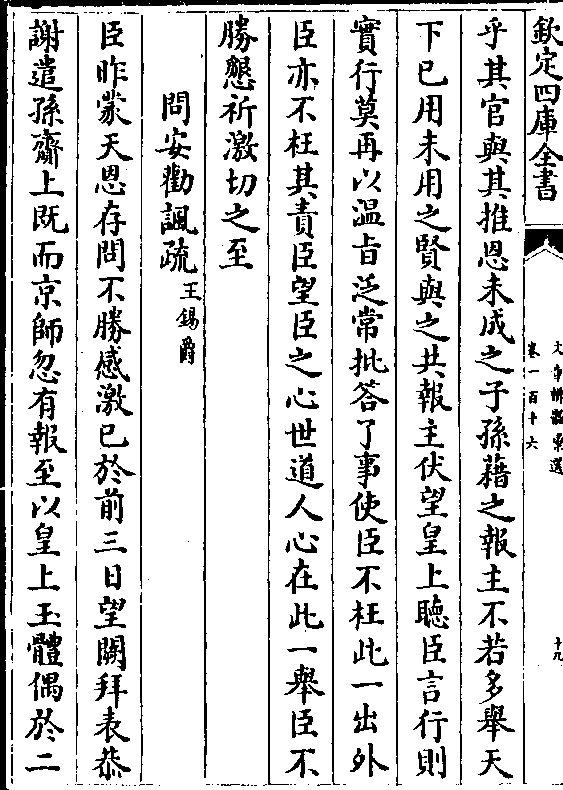 欽定四庫全書
文章辨體彙選
卷一百十六
十九
乎其官與其推恩未成之子孫藉之報主不若多舉天
下已用未用之賢與之共報主伏望皇上聽臣言行則
實行莫再以溫旨泛常批答了事使臣不枉此一出外
臣亦不枉其責臣望臣之心世道人心在此一舉臣不
勝懇祈激切之至
問安勸諷疏王錫爵
臣昨蒙天恩存問不勝感激已於前三日望闕拜表恭
謝遣孫齎上既而京師忽有報至以皇上玉體偶於二